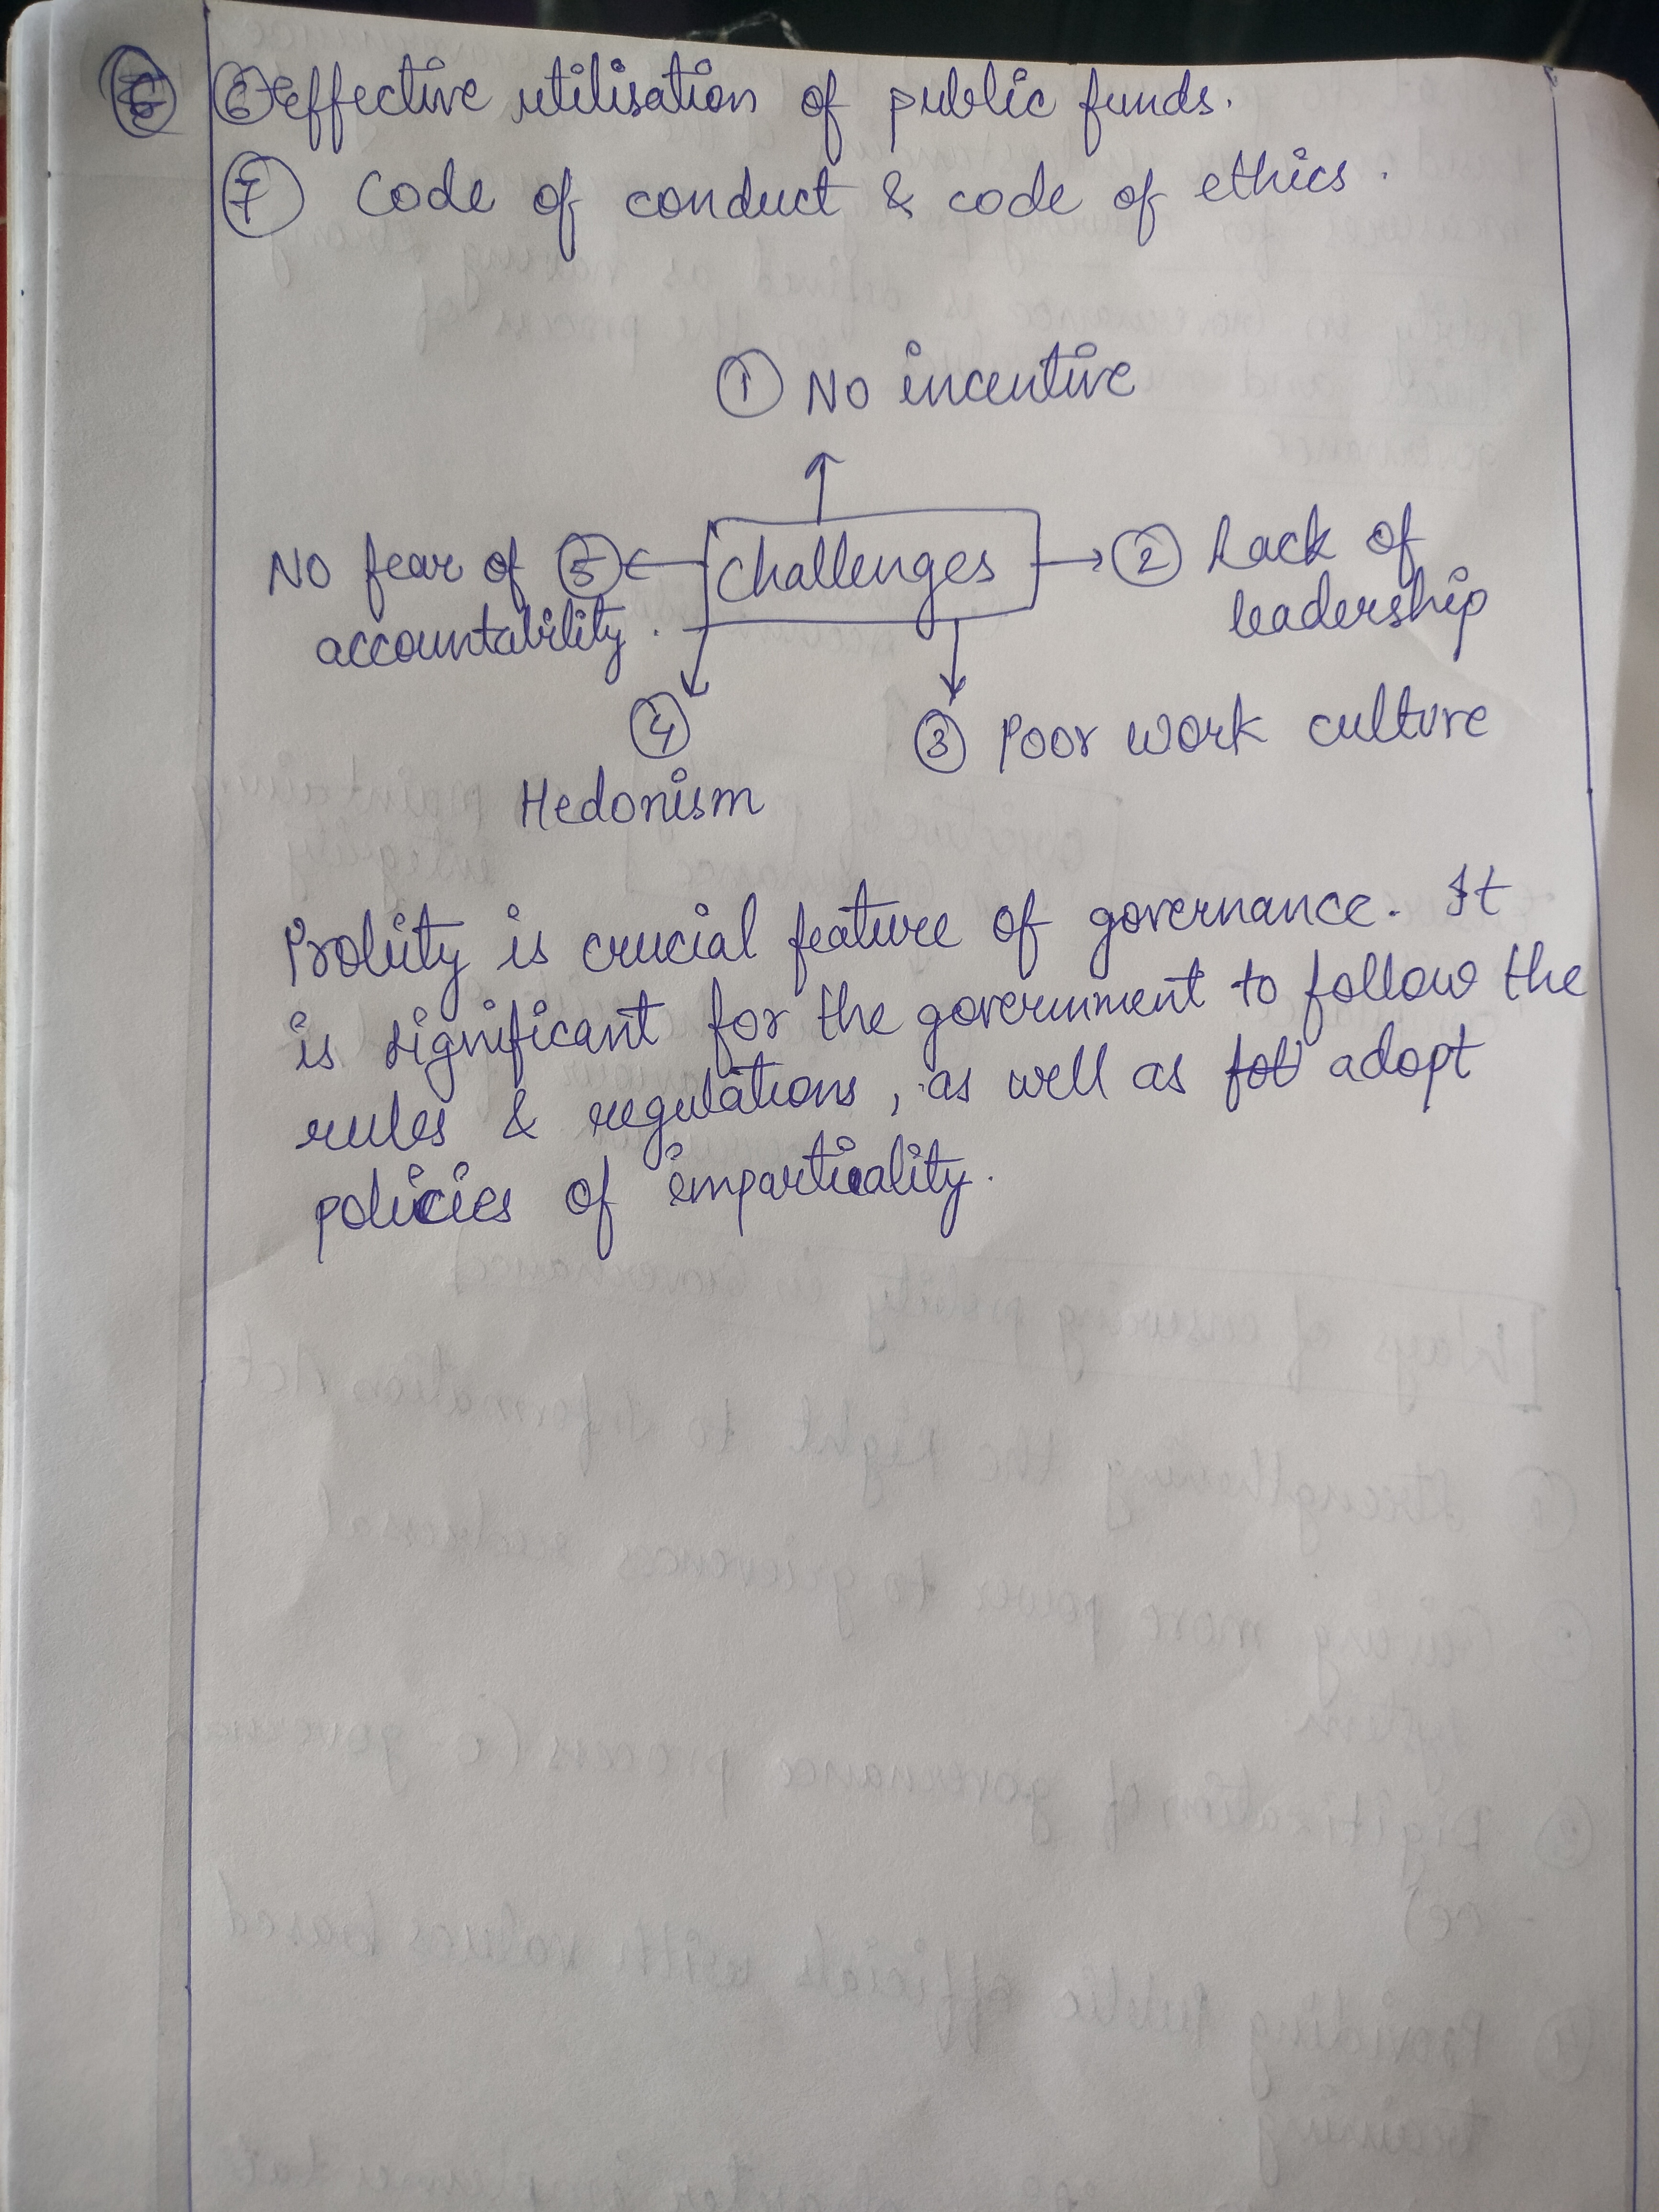 ⑥ Effective utilisation of public funds.
⑦ Code of conduct & code of ethics.
① No incentive
Challenges
② Lack of
leadership
③ Poor work culture
④
Hedonism
No fear of ⑤
accountability.
Probity is crucial feature of governance. It
is significant for the government to follow the
rules & regulations, as well as adopt
policies of impartiality.